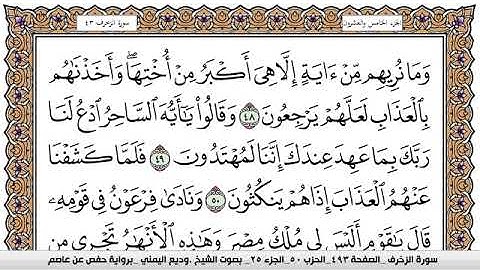 الجزء الخامس والعشرون
سورة الزخرف ٤٣
وَمَا نُرِيهِم مِّنْ ءَايَةٍ إِلَّا هِىَ أَكْبَرُ مِنْ أُخْتِهَا ۖ وَأَخَذْنَٰهُم
بِٱلْعَذَابِ لَعَلَّهُمْ يَرْجِعُونَ ٤٨ وَقَالُوا۟ يَٰٓأَيُّهَ ٱلسَّاحِرُ ٱدْعُ لَنَا
رَبَّكَ بِمَا عَهِدَ عِندَكَ إِنَّنَا لَمُهْتَدُونَ ٤٩ فَلَمَّا كَشَفْنَا
عَنْهُمُ ٱلْعَذَابَ إِذَا هُمْ يَنكُثُونَ ٥٠ وَنَادَىٰ فِرْعَوْنُ فِى قَوْمِهِۦ
قَالَ يَٰقَوْمِ أَلَيْسَ لِى مُلْكُ مِصْرَ وَهَٰذِهِ ٱلْأَنْهَٰرُ تَجْرِى مِن
سورة الزخرف _الصفحة ٤٩٣_ الحزب ٥٠_ الجزء ٢٥_ بصوت الشيخ .وديع اليمني _برواية حفص عن عاصم